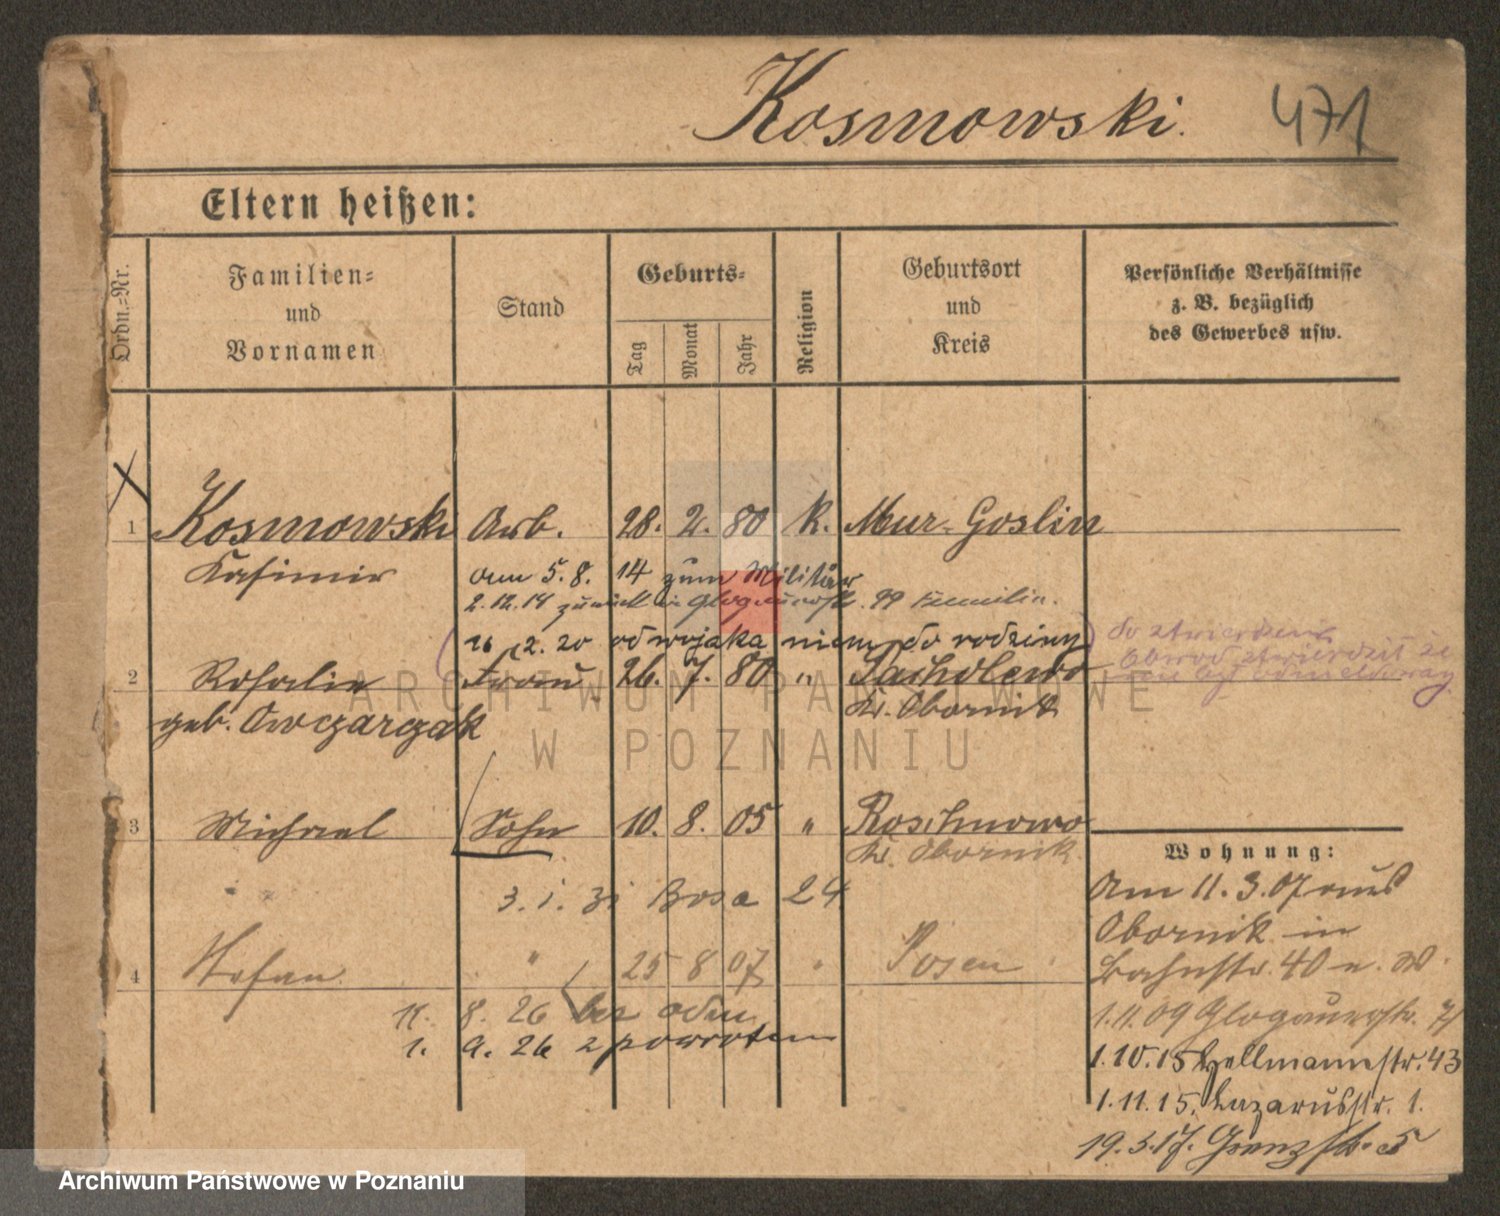 Kosmowski. 471
Eltern heißen:
Ordn.-Nr.
Familien-
und
Vornamen
Stand
Geburts-
Tag
Monat
Jahr
Religion
Geburtsort
und
Kreis
Persönliche Verhältnisse
z. B. bezüglich
des Gewerbes usw.
1 Kosmowski Arb. 28. 2. 80 k. Mur-Goslin
Kasimir am 5. 8. 14 zum Militär
2.12.14 zurück in Glogauerstr. 99 Familie.
26 2. 20 od wojska niem do rodziny
do stwierdzenia
2 Rosalie Frau 26. 7. 80 " Pacholewo
geb. Owczarzak Kr. Obornik
3 Michael Sohn 10. 8. 05 " Roschnowo
Kr. Obornik
3. 1. zi Bosa 24
4 Stefan " 25 8 07 " Posen
11. 8. 26 bez odm
1. 9. 26 z powrotem
Wohnung:
Am 11. 3. 07 aus
Obornik in
Bahnstr. 40 n. W.
1. 11. 09 Glogauerstr. 71
1. 10. 15 Hellmannstr. 43
1. 11. 15. Lazarusstr. 1.
19. 3. 17. Grenzstr. 5
ARCHIWUM PAŃSTWOWE
W POZNANIU
Archiwum Państwowe w Poznaniu